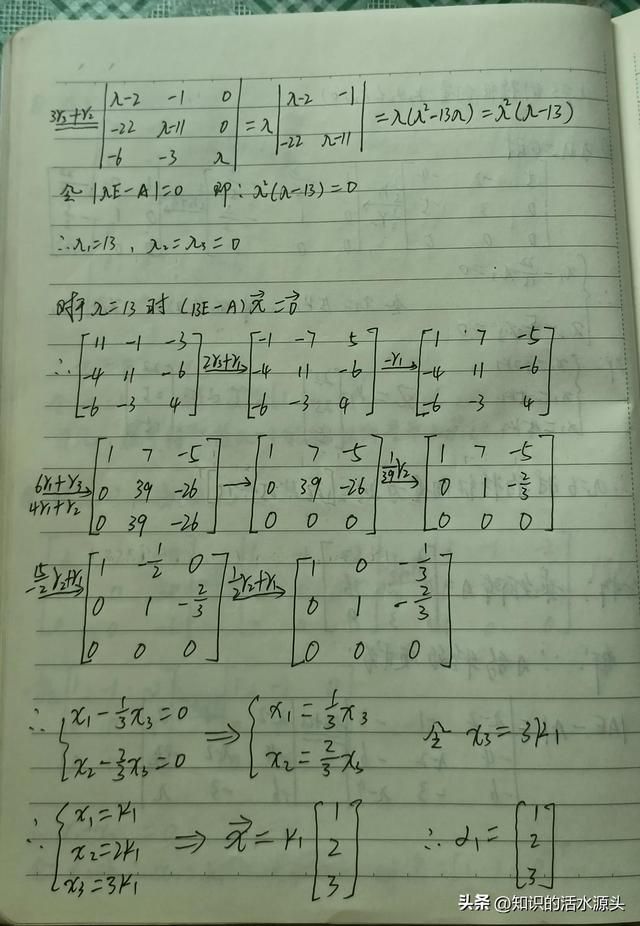 3r₃+r₂ |λ-2 -1 0; -22 λ-11 0; -6 -3 λ| = λ |λ-2 -1; -22 λ-11| = λ(λ²-13λ) = λ²(λ-13)
令 |λE-A|=0 即: λ²(λ-13)=0
∴λ₁=13, λ₂=λ₃=0
对于λ=13时 (13E-A)x⃗=0⃗
∴ [11 -1 -3; -4 11 -6; -6 -3 4] 2r₃+r₁→ [-1 -7 5; -4 11 -6; -6 -3 4] -r₁→ [1 7 -5; -4 11 -6; -6 -3 4]
6r₁+r₃ 4r₁+r₂→ [1 7 -5; 0 39 -26; 0 39 -26] → [1 7 -5; 0 39 -26; 0 0 0] 1/39 r₂→ [1 7 -5; 0 1 -2/3; 0 0 0]
-15/2 r₂+r₁→ [1 -1/2 0; 0 1 -2/3; 0 0 0] 1/2 r₂+r₁→ [1 0 -1/3; 0 1 -2/3; 0 0 0]
∴ {x₁-1/3x₃=0; x₂-2/3x₃=0 ⇒ {x₁=1/3x₃; x₂=2/3x₃ 令 x₃=3k₁
∴ {x₁=k₁; x₂=2k₁; x₃=3k₁ ⇒ x⃗=k₁[1; 2; 3] ∴ α₁=[1; 2; 3]
头条 @知识的活水源头